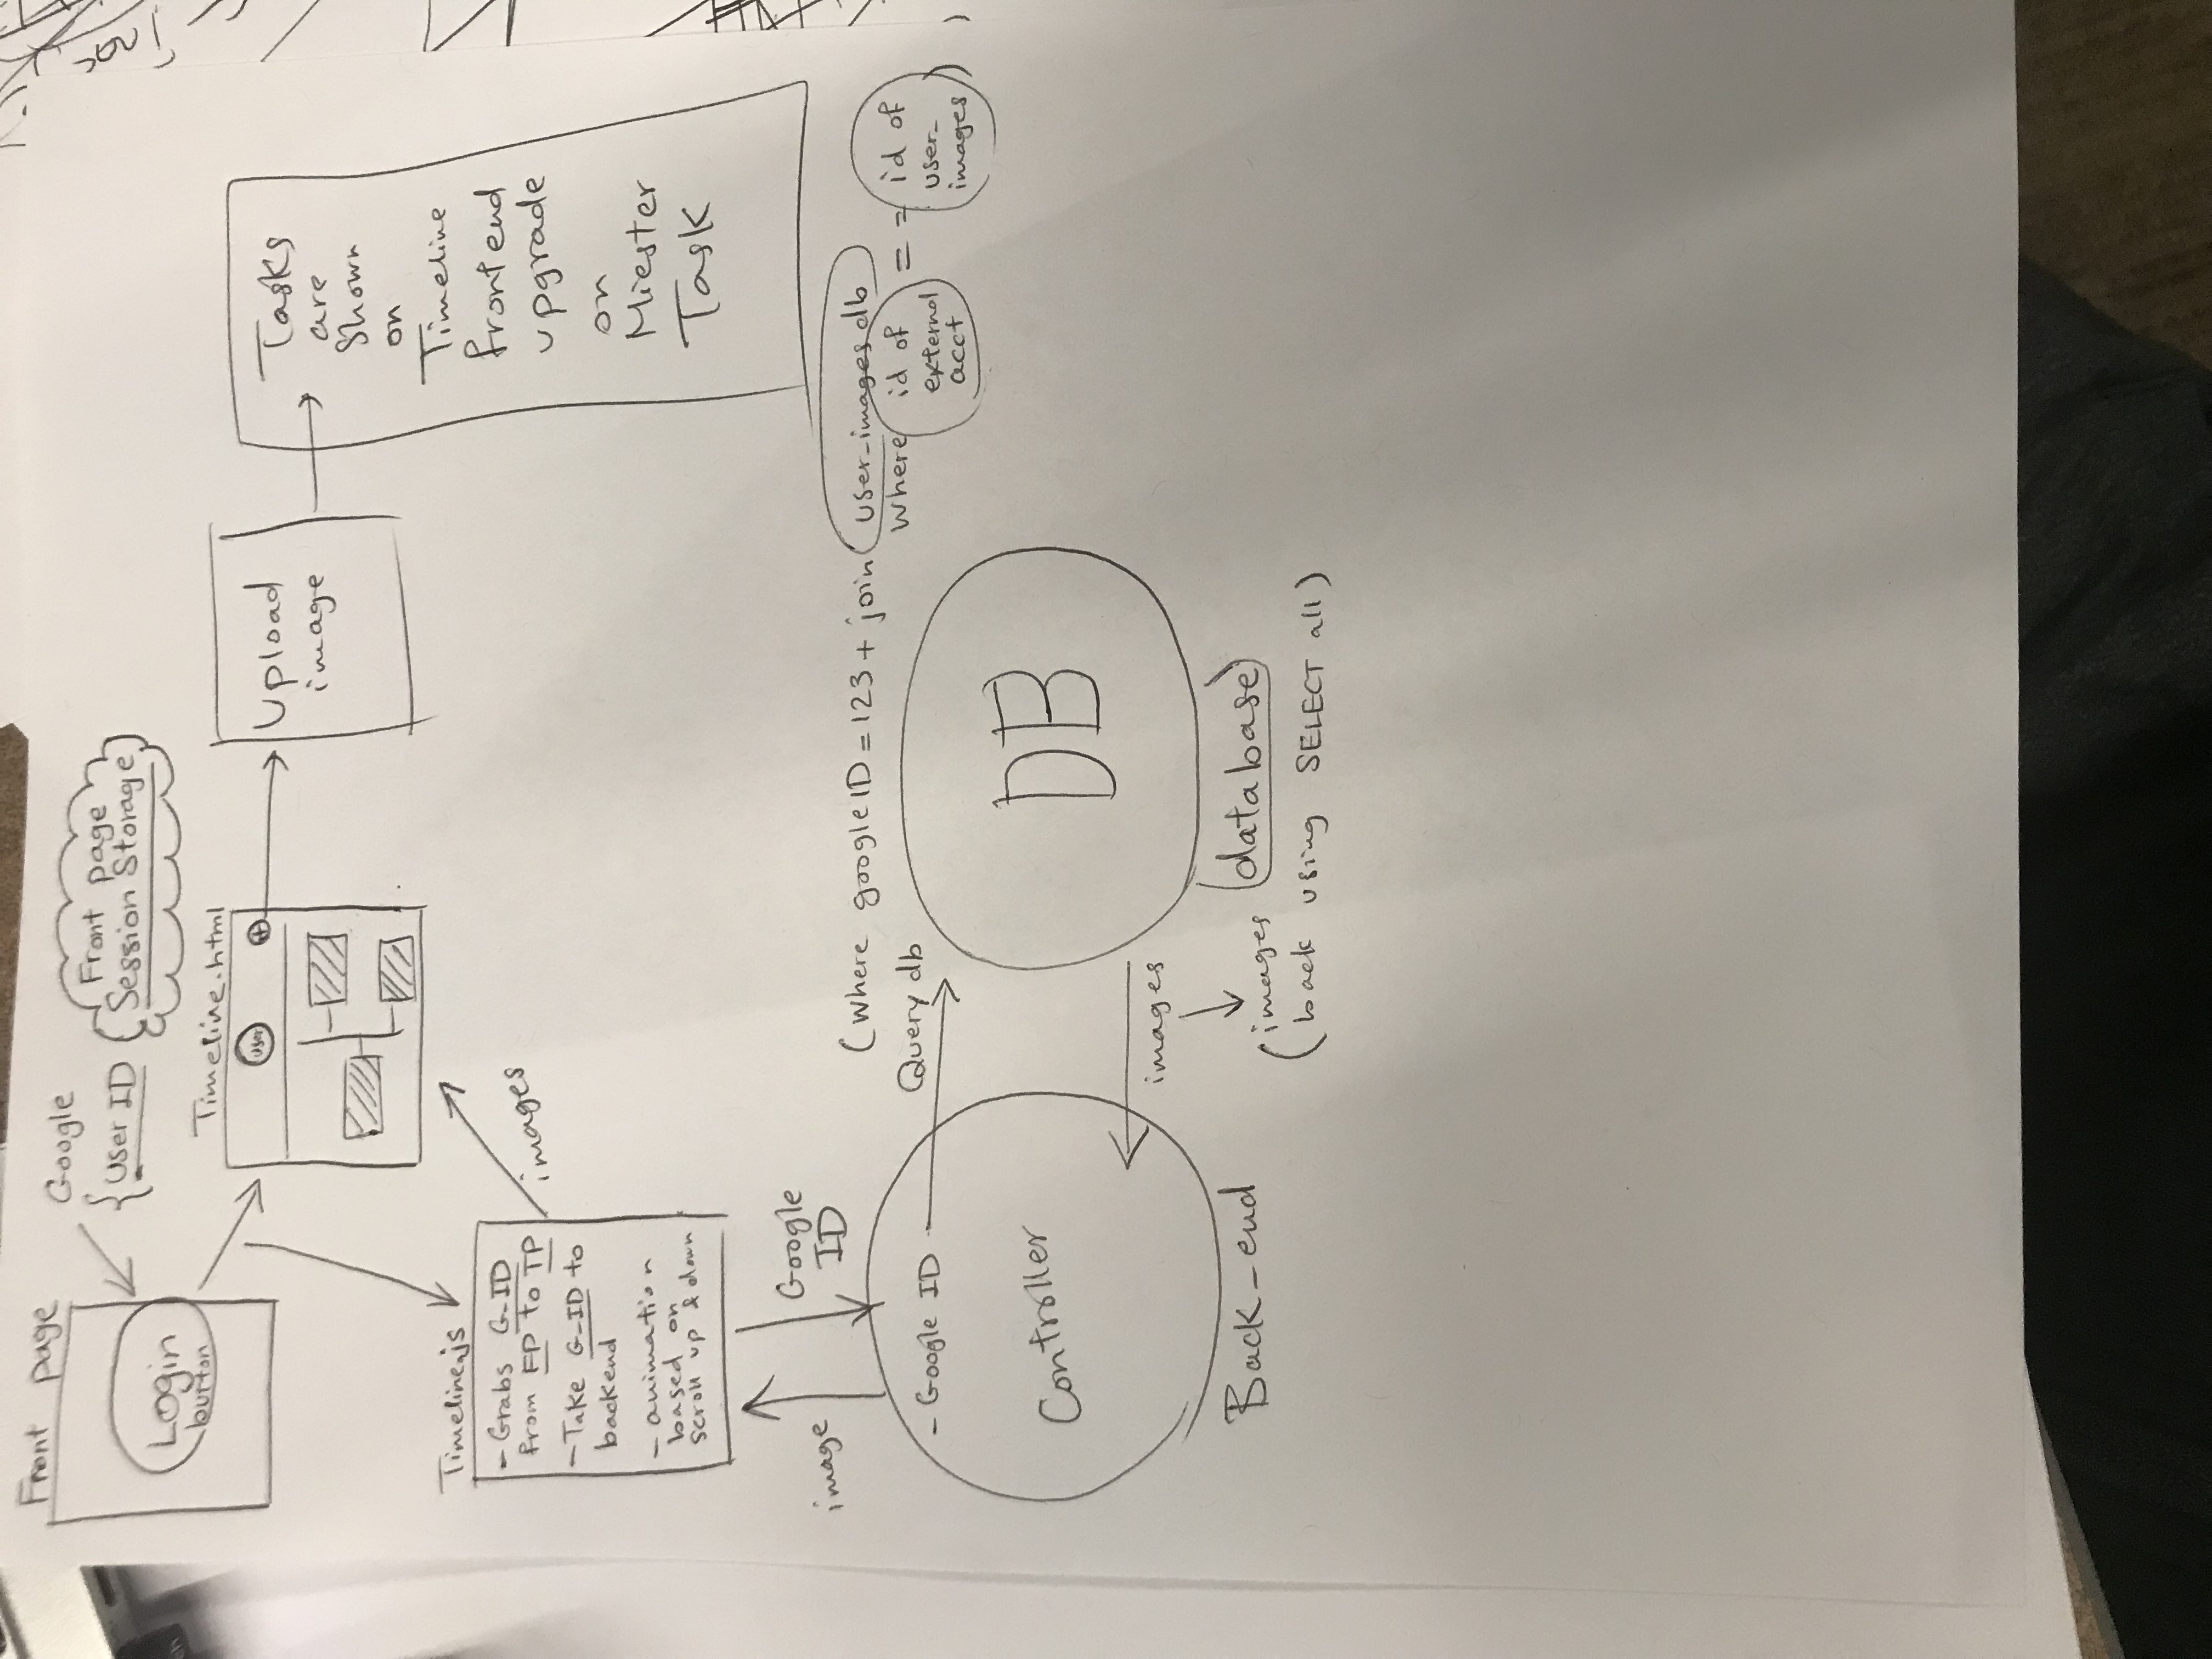 Front page
Login
button
Google
{User ID
Front page
Session Storage
Timeline.html
user
+
Upload
image
Tasks
are
Shown
on
Timeline
frontend
upgrade
on
Miester
Task
Timeline.js
- Grabs G-ID
from FP to TP
- Take G-ID to
backend
- animation
based on
scroll up & down
images
image
Google
ID
(where google ID = 123 + join user-images db
where id of external acct == id of user-images)
Query db
- Google ID
Controller
Back-end
DB
(database)
images
(images
back using SELECT all)